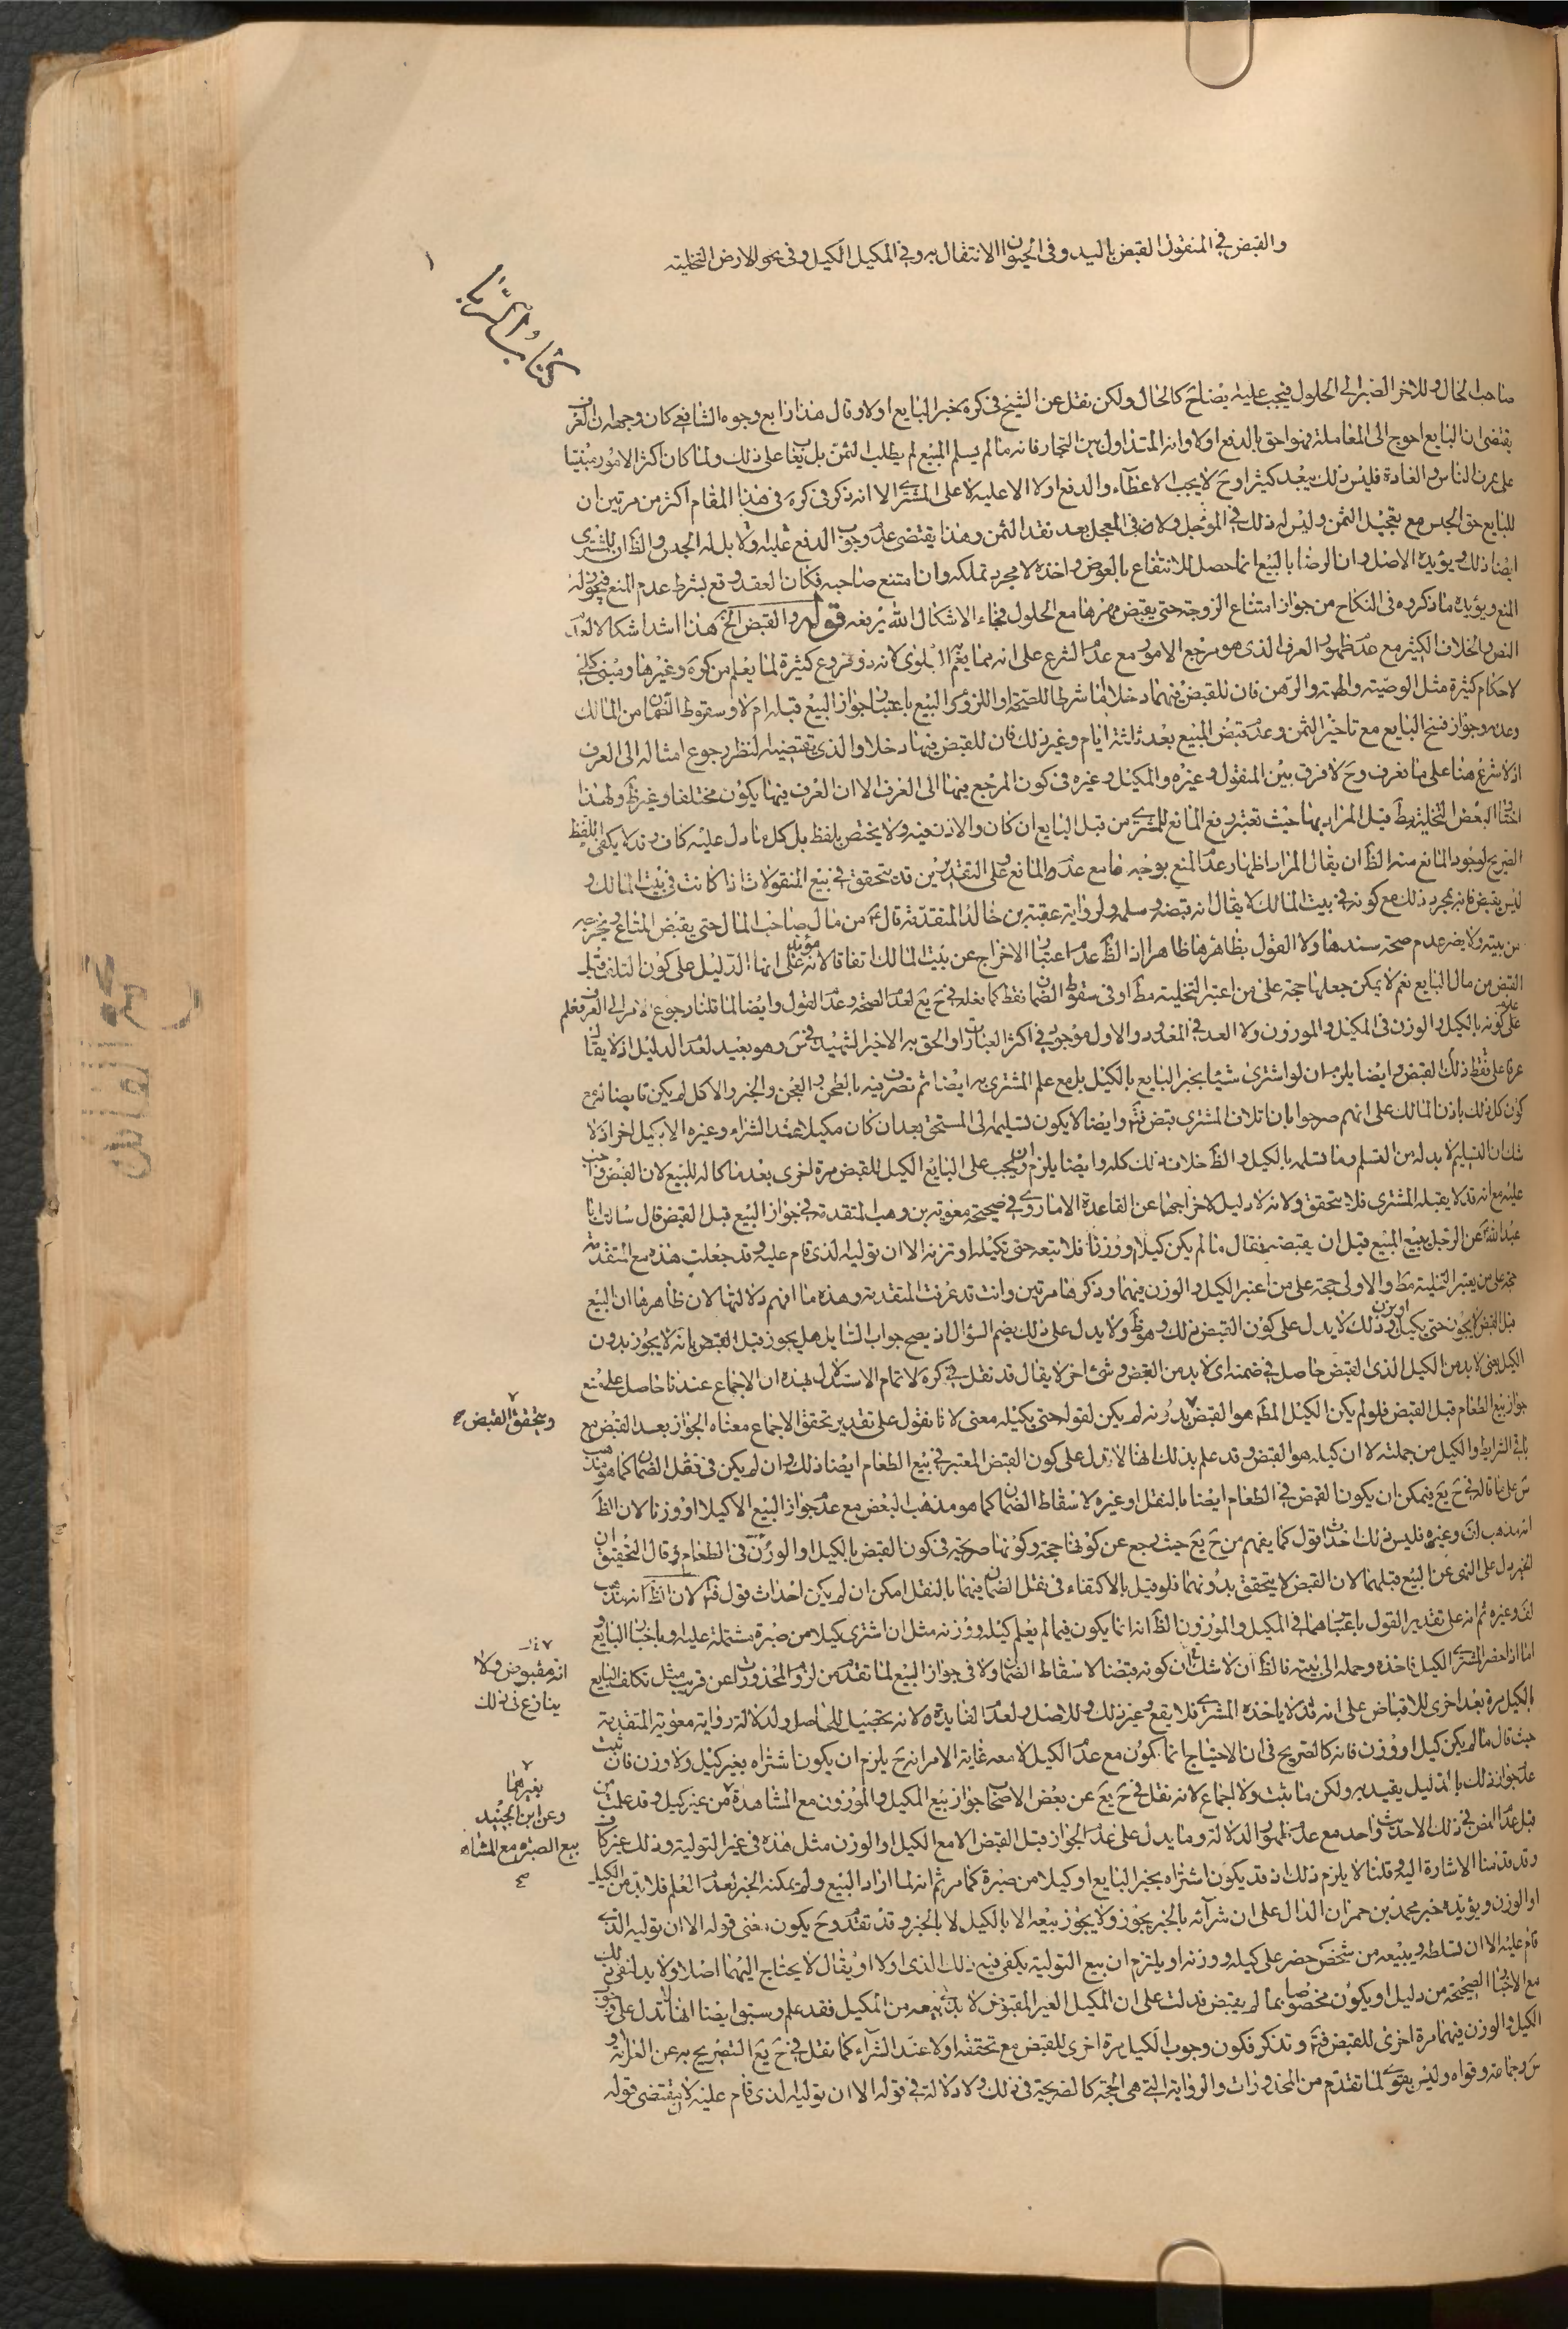 والقبض في المنقول القبض باليد وفى الحيوان الانتقال به وفي المكيل الكيل وفى نحو الارض التخلية
كتاب
صاحب الحال وللاخر الصبر الى الحلول فيجب عليه ايضاح كالحال ولكن نقل عن الشيخ فى كره يخبر البايع اولا وقال هذا رابع وجوه الشافعى كان وجهه ان العرف
يقتضى ان البايع احوج الى المعاملة فهو احق بالدفع اولا وانه المتداول بين التجار فانه ما لم يسلم المبيع لم يطلب الثمن بل بقا على ذلك ولما كان اكثر الامور مبنيا
على عرف الناس والعادة فليس ذلك ببعيد كثيرا وح لا يجب الاعطاء والدفع اولا الا عليه لا على المشترى الا انه ذكر فى كره فى هذا المقام اكثر من مرتين ان
للبايع حق الحبس مع تعجيل الثمن وليس له ذلك فى المؤجل ولا فى المعجل بعد نقد الثمن وهذا يقتضى عدم وجوب الدفع عليه اولا بل له الحبس والظ ان للمشترى
ايضا ذلك ويؤيده الاصل وان الرضا بالبيع انما حصل للانتفاع بالعوض واخذه لا مجرد تملكه وان امتنع صاحبه فكان العقد وقع بشرط عدم المنع فيجوز له
المنع ويؤيده ما ذكروه فى النكاح من جواز امتناع الزوجة حتى يقبض مهرها مع الحلول فجاء الاشكال الله يرفعه قوله والقبض الخ هذا اشد اشكالا لعدم
النص والخلاف الكثير مع عدم ظهور العرف الذى هو مرجع الامور مع عدم الشرع على انه مما يعم به البلوى لانه ذو فروع كثيرة لما يعلم من كره وغيرها ومبنى كلى
لاحكام كثيرة مثل الوصية والهبة والرهن فان للقبض فيهما دخلا اما شرطا للصحة او اللزوم وكذا البيع باعتبار جواز البيع قبله ام لا وسقوط الضمان من المالك
وعدمه وجواز فسخ البايع مع تاخير الثمن وعدم قبض المبيع بعد ثلثة ايام وغير ذلك فان للقبض فيها دخلا والذى يقتضيه النظر رجوع امثاله الى العرف
اذ لا شرع هنا على ما نعرف وح لا فرق بين المنقول وغيره والمكيل وغيره فى كون المرجع فيها الى العرف الا ان العرف فيها يكون مختلفا وغير ظ ولهذا
اختار البعض التخلية مط قيل المراد بها حيث تعتبر رفع المانع للمشترى من قبل البايع ان كان والاذن فيه ولا يختص بلفظ بل كل ما دل عليه كاف وقد لا يكفى اللفظ
الصريح لوجود المانع منه الظ ان يقال المراد اظهار عدم المنع بوجه ما مع عدم المانع وعلى التقديرين قد يتحقق فى بيع المنقولات اذا كانت فى بيت المالك و
ليس بقبض فانه بمجرد ذلك مع كونه فى بيت المالك لا يقال انه قبضه وسلمه ولرواية عقبة بن خالد المتقدمة قال ع من مال صاحب المال حتى يقبض المتاع ويخرجه
من بيته ولا يضر عدم صحة سندها ولا القول بظاهرها ظاهرا اذ الظ عدم اعتبار الاخراج عن بيت المالك اتفاقا لانه مؤيد على انها الدليل على كون التلف قبل
القبض من مال البايع نعم لا يمكن جعلها حجة على من اعتبر التخلية مط او فى سقوط الضمان فقط كما نقله فى ح يع لعدم الصحة وعدم القول وايضا لما قلنا رجوع الامر الى العرف فعلم
على كونه بالكيل والوزن فى المكيل والموزون ولا العد فى المعدود والاول موجود فى اكثر العبارات والحق به الاخير الشهيد فى س وهو بعيد لعدم الدليل اذ لا يقال
عرفا على فقط ذلك القبض وايضا يلزم ان لو اشترى شيئا بخبر البايع بالكيل بل مع علم المشترى به ايضا ثم تصرف فيه بالطحن والعجن والخبز والاكل لم يكن قابضا له مع
كون كل ذلك باذن المالك على انهم صرحوا بان اتلاف المشترى قبض فتم وايضا لا يكون تسليمه الى المستحق بعد ان كان مكيلا عند الشراء وغيره الا بكيل اخر اذ لا
شك ان التسليم لا بد له من التسلم وما تسلمه بالكيل والظ خلاف ذلك كله وايضا يلزم ان يجب على البايع الكيل للقبض مرة اخرى بعد ما كاله للبيع لان القبض واجب
عليه مع انه قد لا يقبله المشترى فلا يتحقق ولانه لا دليل لاخراجهما عن القاعدة الا ما روى فى صحيحة معوية بن وهب المتقدمة فى جواز البيع قبل القبض قال سالت ابا
عبد الله ع عن الرجل يبيع المبيع قبل ان يقبضه فقال ما لم يكن كيلا او وزنا فلا تبعه حتى تكيله او تزنه الا ان توليه الذى قام عليه وقد جعلت هذه مع المتقدمة
حجة على من يعتبر التخلية مط والاولى حجة على من اعتبر الكيل والوزن فيهما وذكرها مرتين وانت قد عرفت المتقدمة وهذه ما افهم دلالتها لان ظاهرها ان البيع
قبل القبض لا يجوز حتى يكيل او يزن وذلك لا يدل على كون القبض ذلك وهو ظ ولا يدل على ذلك بضم السؤال اذ يصح جواب السايل هل يجوز قبل القبض بانه لا يجوز بدون
الكيل يعنى لا بد من الكيل الذى القبض حاصل فى ضمنه اى لا بد من القبض وشئ اخر لا يقال قد نقل فى كره لاتمام الاستدلال بهذه ان الاجماع عندنا حاصل على منع
جواز بيع الطعام قبل القبض فلو لم يكن الكيل المط هو القبض بدونه لم يكن لقوله حتى يكيله معنى لانا نقول على تقدير تحقق الاجماع معناه الجواز بعد القبض مع
ويتحقق القبض صح
باقى الشرايط والكيل من جملته لا ان كيله هو القبض وقد علم بذلك انها لا تدل على كون القبض المعتبر فى بيع الطعام ايضا ذلك وان لم يكن فى نقل الضمان كما هو مذهب
س على ما قاله فى ح يع فيمكن ان يكون القبض فى الطعام ايضا بالنقل او غيره لاسقاط الضمان كما هو مذهب البعض مع عدم جواز البيع الا كيلا او وزنا لان الظ
انه مذهب لف وغيره فليس ذلك احداث قول كما يفهم من ح يع حيث رجع عن كونها حجة وكونها صريحة فى كون القبض بالكيل او الوزن فى الطعام وقال التحقيق ان
الخبر دل على النهى عن البيع قبلهما لان القبض لا يتحقق بدونهما فلو قيل بالاكتفاء فى نقل الضمان فيهما بالنقل امكن ان لم يكن احداث قول فتم لان الظ انه مذهب
لف وغيره ثم انه على تقدير القول باعتبارهما فى المكيل والموزون الظ انه انما يكون فيما لم يعلم كيله ووزنه مثل ان اشترى كيلا من صبرة مشتملة عليه وباخبار البايع و
اما اذا حضر المشترى الكيل فاخذه وحمله الى بيته فالظ ان لا شك ان كونه قبضا لاسقاط الضمان ولا فى جواز البيع لما تقدم من لزوم المحذورات عن قريب مثل تكلف البايع
انه مقبوض ولا
ينازع فى ذلك
بالكيل مرة بعد اخرى للاقباض على انه قد لا ياخذه المشترى فلا يقع وغير ذلك وللاصل ولعدم الفايدة ولانه تحصيل للحاصل ولدلالة رواية معوية المتقدمة
حيث قال ما لم يكن كيل او وزن فانه كالصريح فى ان الاحتياج انما يكون مع عدم الكيل لا معه غاية الامر انه ح يلزم ان يكون اشتراه بغير كيل ولا وزن فان ثبت
عدم جواز ذلك بالدليل يقيد به ولكن ما ثبت ولا اجماع لانه نقل فى ح يع عن بعض الاصحاب جواز بيع المكيل والموزون مع المشاهدة من غير كيل وقد علمت من
بغيرهما
وعن ابن الجنيد
بيع الصبرة مع المشاهدة
صح
قبل عدم النص فى ذلك الا حديث واحد مع عدم ظهور الدلالة وما يدل على عدم الجواز قبل القبض الا مع الكيل او الوزن مثل هذه فى غير التولية وذلك غير كاف
وقد قدمنا الاشارة اليه وقلنا لا يلزم ذلك اذ قد يكون اشتراه بخبر البايع او كيلا من صبرة كما مر ثم انه لما اراد البيع ولم يمكنه الخبر لعدم العلم فلا بد من الكيل
او الوزن ويؤيده خبر محمد بن حمران الدال على ان شرائه بالخبر يجوز ولا يجوز بيعه الا بالكيل لا بالخبر وقد تقدم وح يكون معنى قوله الا ان توليه الذى
قام عليه الا ان تسلطه وتبيعه من شخص حضر على كيله ووزنه او يلتزم ان بيع التولية يكفى فيه ذلك الذى اولا او يقال لا يحتاج اليهما اصلا ولا بد لنفى ذلك
مع الاخبار الصحيحة من دليل او يكون مخصوصا بما لم يقبض فدلت على ان المكيل الغير المقبوض لا بد لبيعه من المكيل فقد علم وسبق ايضا انها لا تدل على وجوب
الكيل والوزن فيهما مرة اخرى للقبض فتم وتذكر فكون وجوب الكيل مرة اخرى للقبض مع تحققه اولا عند الشراء كما نقل فى ح يع التصريح به عن العلامة و
س وجماعة وقواه وليس بقوى لما تقدم من المحذورات والرواية التى هى الحجة كالصريحة فى ذلك ولا دلالة فى قوله الا ان توليه الذى قام عليه لا يقتضى قوله